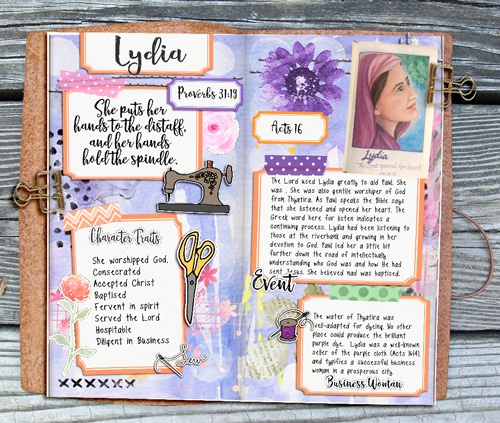 Lydia
Proverbs 31:19
She puts her
hands to the distaff,
and her hands
hold the spindle.
Character Traits
She worshipped God.
Consecrated
Accepted Christ
Baptised
Fervent in spirit
Served the Lord
Hospitable
Diligent in Business
Sew
Acts 16
Lydia
The Lord opened her heart
The Lord used Lydia greatly to aid Paul. She
was . She was also gentile worshiper of God
from Thyatira. As Paul speaks the Bible says
that she listened and opened her heart. The
Greek word here for listen indicates a
continuing process. Lydia had been listening to
those at the riverbank and growing in her
devotion to God. Paul led her a little bit
further down the road of intellectually
understanding who God was and how He had
sent Jesus. She believed nad was baptised.
Event
The water of Thyatira was
well-adapted for dyeing. No other
place could produce the brilliant
purple dye. Lydia was a well-known
seller of the purple cloth (Acts 16:14);
and typifies a successful business
woman in a prosperous city.
Business Woman